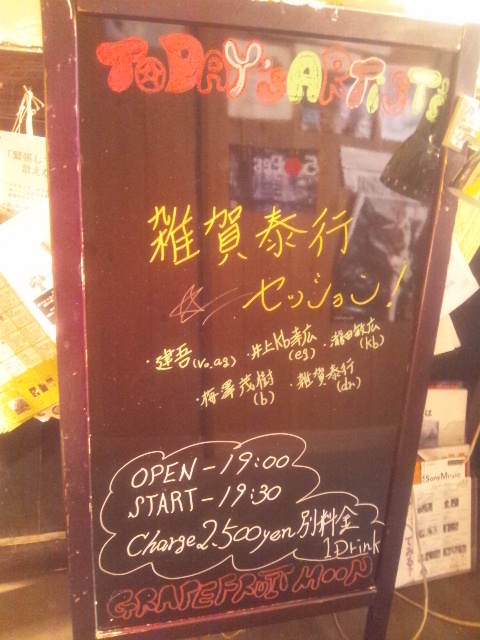 TODAY'S ARTISTS
雑賀泰行
☆セッション!
・建吾(vo.ag)・井上kb幸広(eg)・瀧田敏広(kb)
・梅澤茂樹(b)・雑賀泰行(dr)
OPEN-19:00
START-19:30
Charge2.500yen 別料金
1Drink
GRAPEFRUIT MOON
「緊張し
歌え
Sony Music